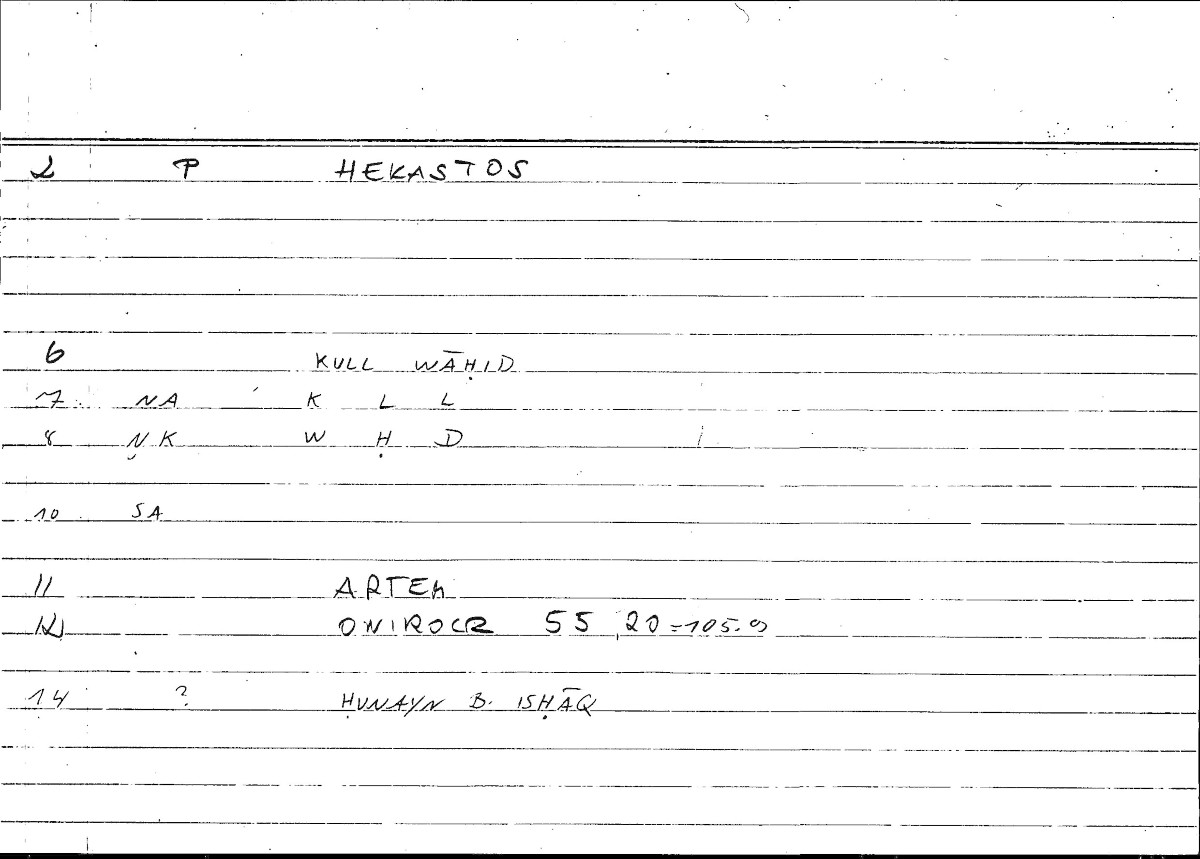 2 P HEKASTOS
6 KULL WĀḤID
7 NA K L L
8 NK W Ḥ D
10 SA
11 ARTEM
12 ONIROCR 55,20=105.9
14 ? ḤUNAYN B. ISḤĀQ